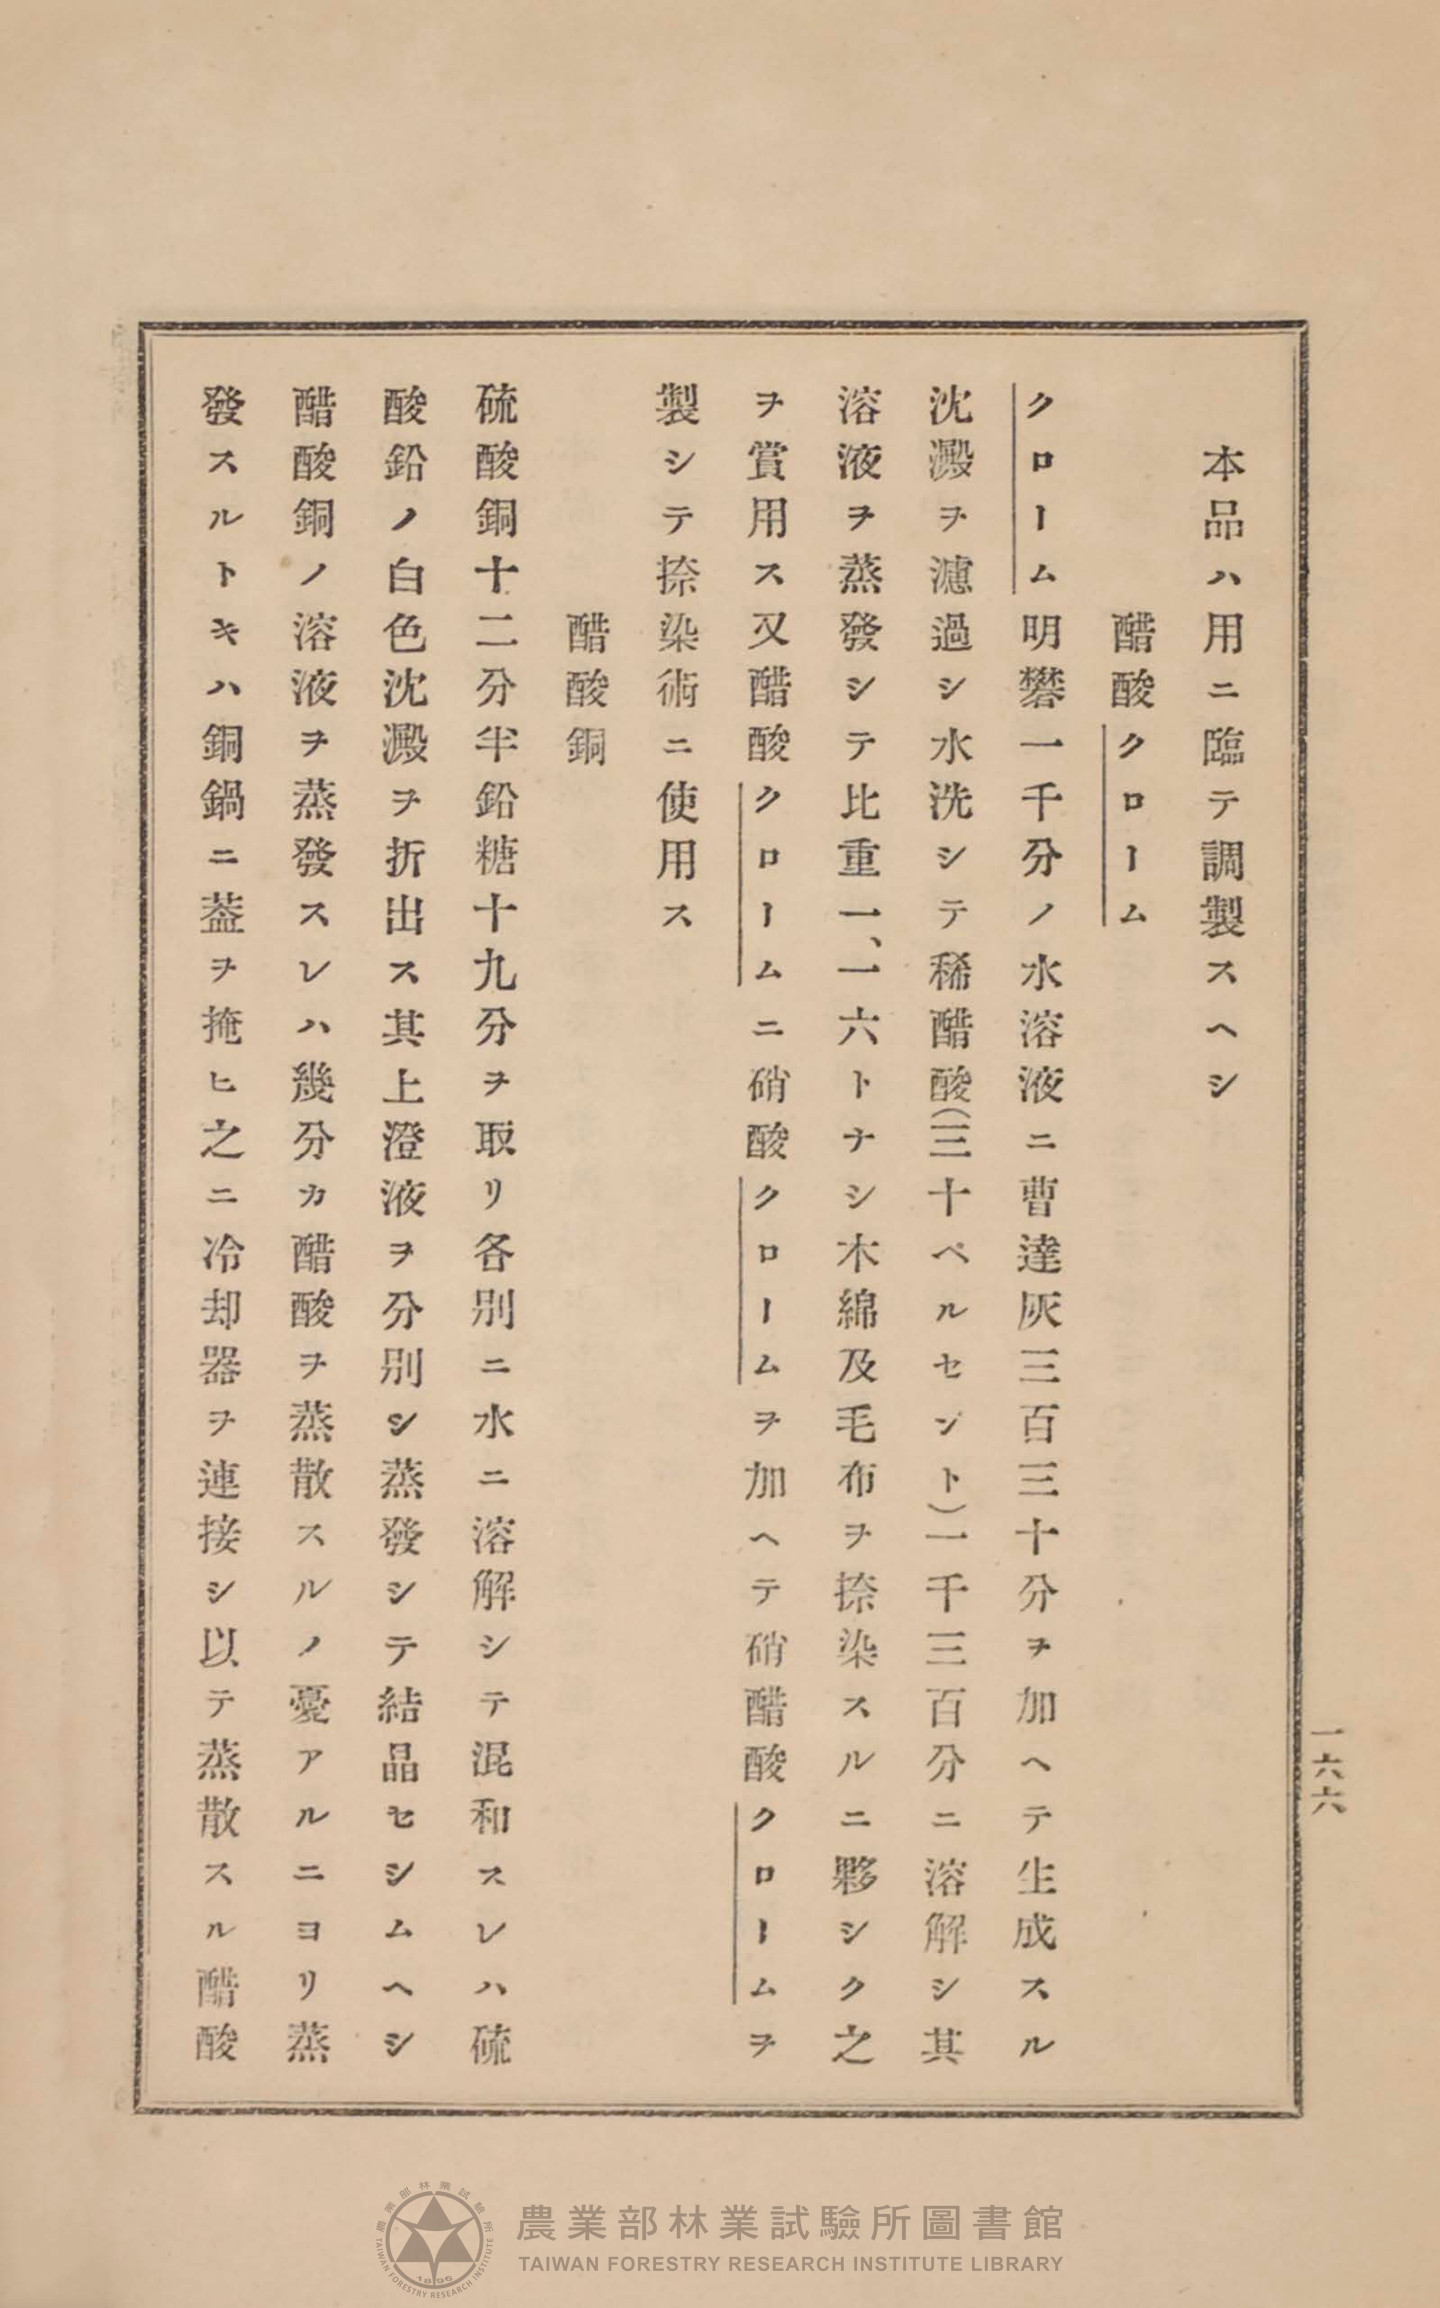 本品ハ用ニ臨テ調製スヘシ
醋酸クローム
クローム明礬一千分ノ水溶液ニ曹達灰三百三十分ヲ加ヘテ生成スル
沈澱ヲ濾過シ水洗シテ稀醋酸(三十ペルセント)一千三百分ニ溶解シ其
溶液ヲ蒸發シテ比重一、一六トナシ木綿及毛布ヲ捺染スルニ夥シク之
ヲ賞用ス又醋酸クロームニ硝酸クロームヲ加ヘテ硝醋酸クロームヲ
製シテ捺染術ニ使用ス
醋酸銅
硫酸銅十二分半鉛糖十九分ヲ取リ各別ニ水ニ溶解シテ混和スレハ硫
酸鉛ノ白色沈澱ヲ折出ス其上澄液ヲ分別シ蒸發シテ結晶セシムヘシ
醋酸銅ノ溶液ヲ蒸發スレハ幾分カ醋酸ヲ蒸散スルノ憂アルニヨリ蒸
發スルトキハ銅鍋ニ蓋ヲ掩ヒ之ニ冷却器ヲ連接シ以テ蒸散スル醋酸
一六六
農業部林業試驗所圖書館
TAIWAN FORESTRY RESEARCH INSTITUTE LIBRARY
農業部林業試驗所
TAIWAN FORESTRY RESEARCH INSTITUTE
1896